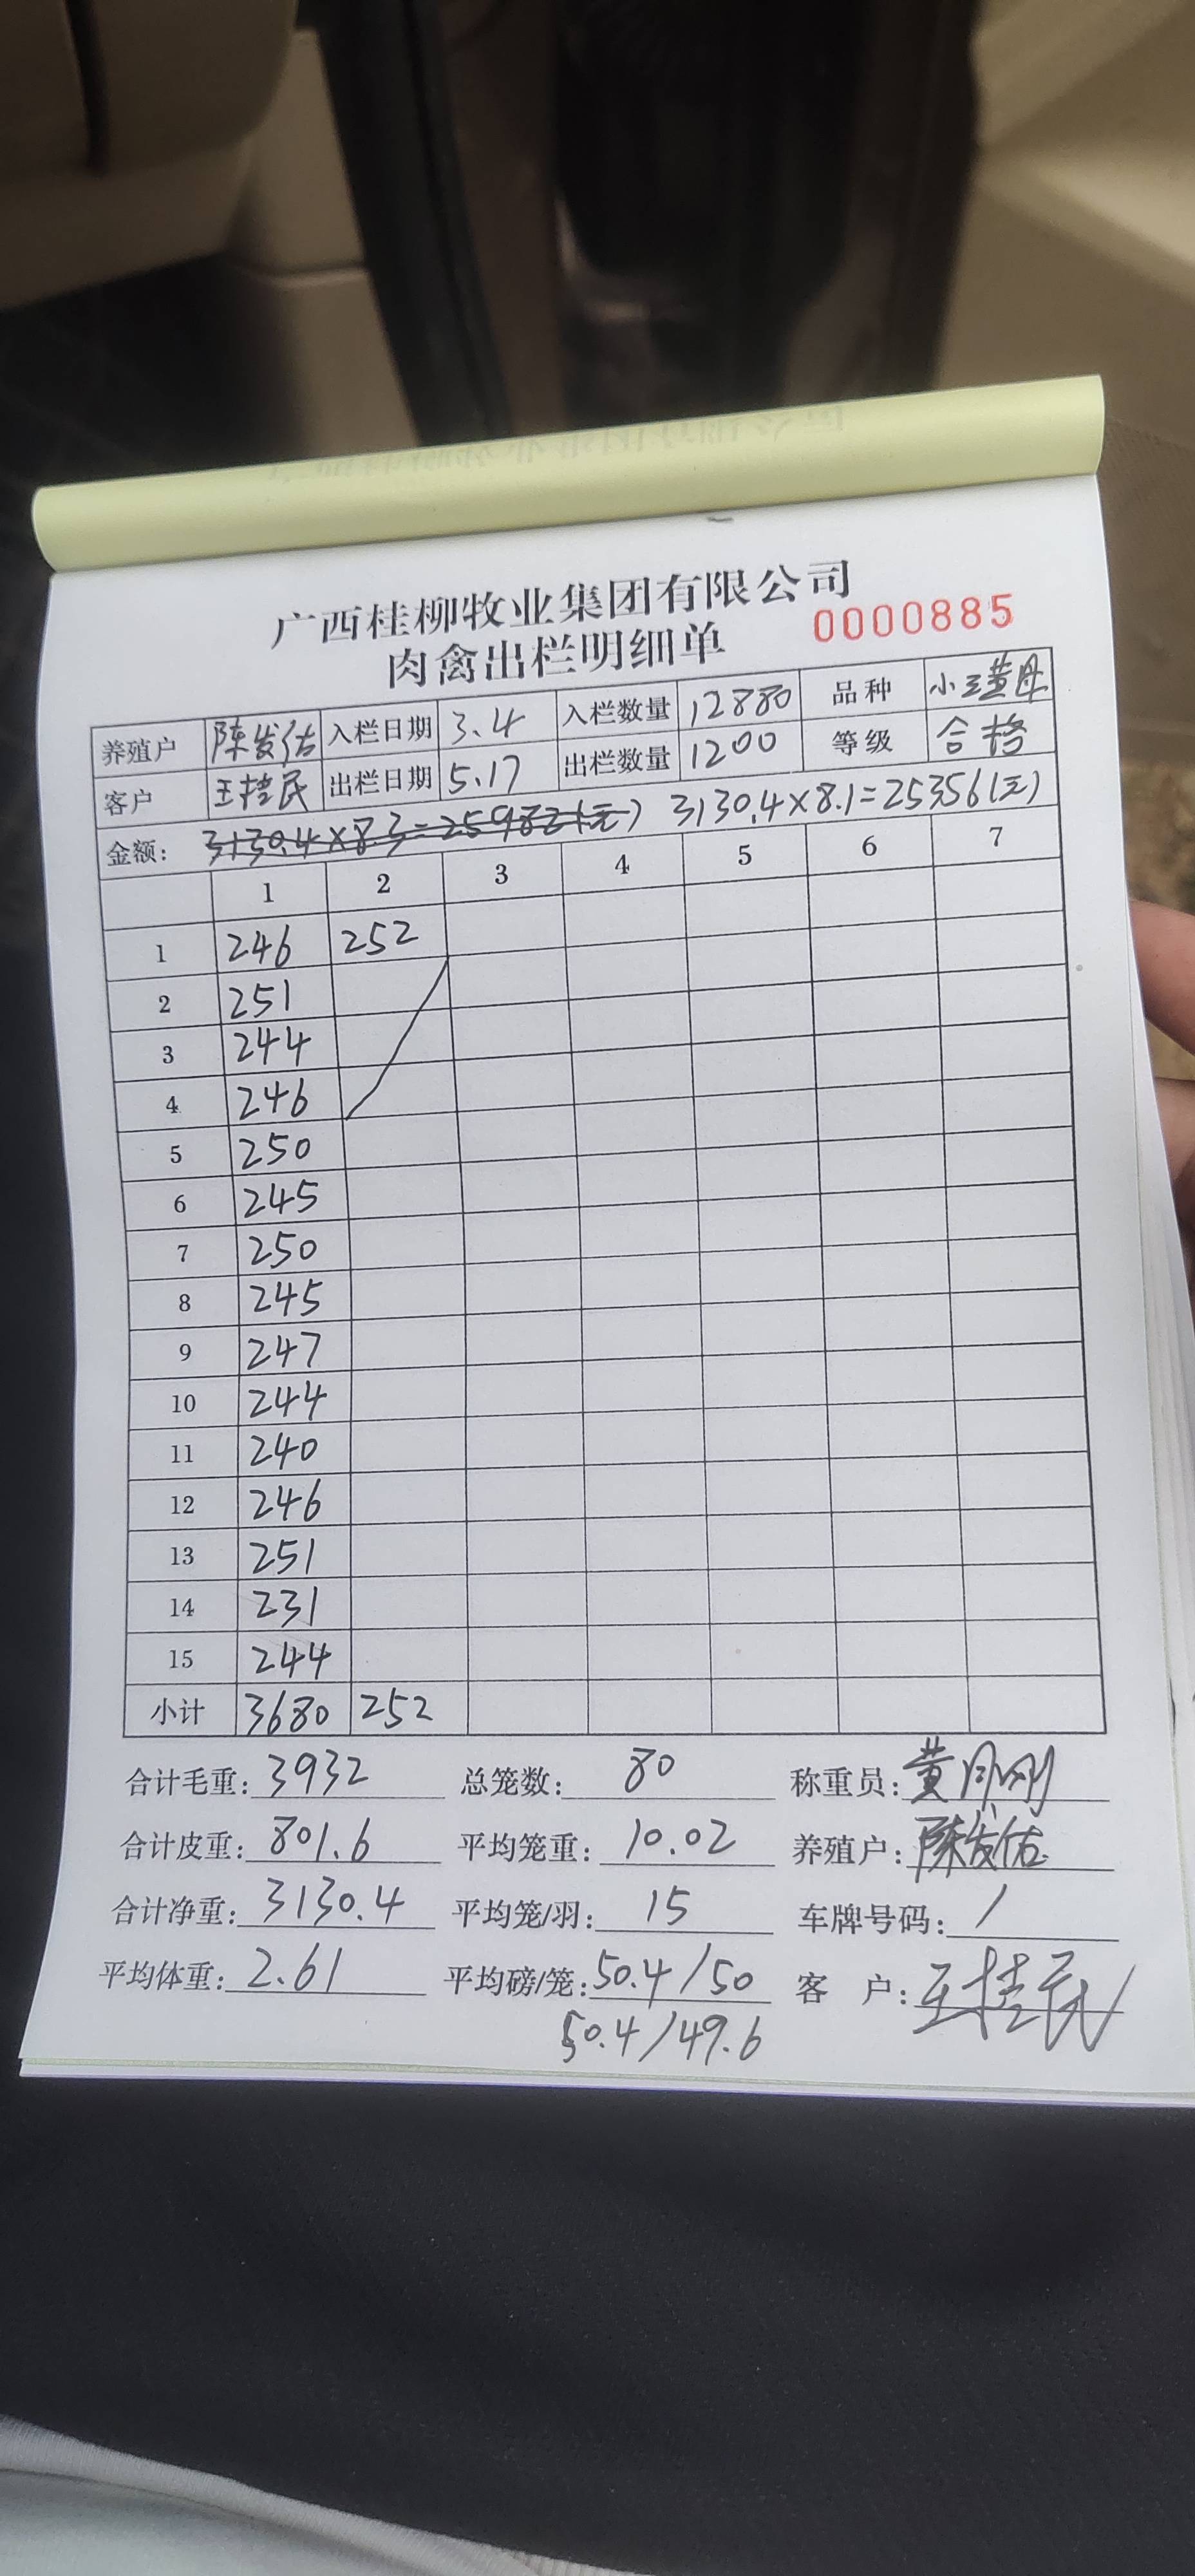 广西桂柳牧业集团有限公司
肉禽出栏明细单 0000885
养殖户 陈发佑 入栏日期 3.4 入栏数量 12880 品种 小三黄母
客户 王桂民 出栏日期 5.17 出栏数量 1200 等级 合格
金额: 3130.4×8.3=25982(元) 3130.4×8.1=25356(元)
1 2 3 4 5 6 7
1 246 252
2 251
3 244
4 246
5 250
6 245
7 250
8 245
9 247
10 244
11 240
12 246
13 251
14 231
15 244
小计 3680 252
合计毛重: 3932 总笼数: 80 称重员: 黄
合计皮重: 801.6 平均笼重: 10.02 养殖户: 陈发佑
合计净重: 3130.4 平均笼/羽: 15 车牌号码: /
平均体重: 2.61 平均磅/笼: 50.4/50 客户: 王桂民
50.4/49.6